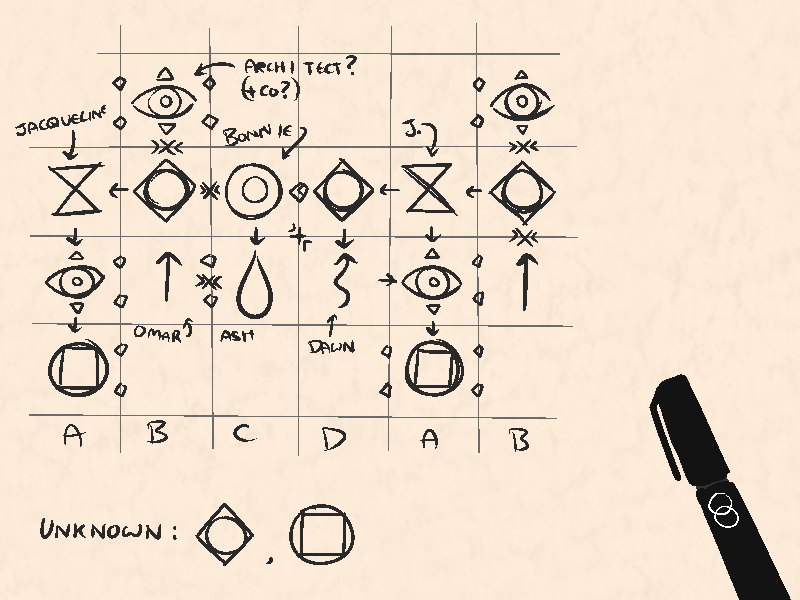 ARCHITECT?
(+CO?)
JACQUELINE
BONNIE
J.
OMAR
ASH
DAWN
A B C D A B
UNKNOWN: ,